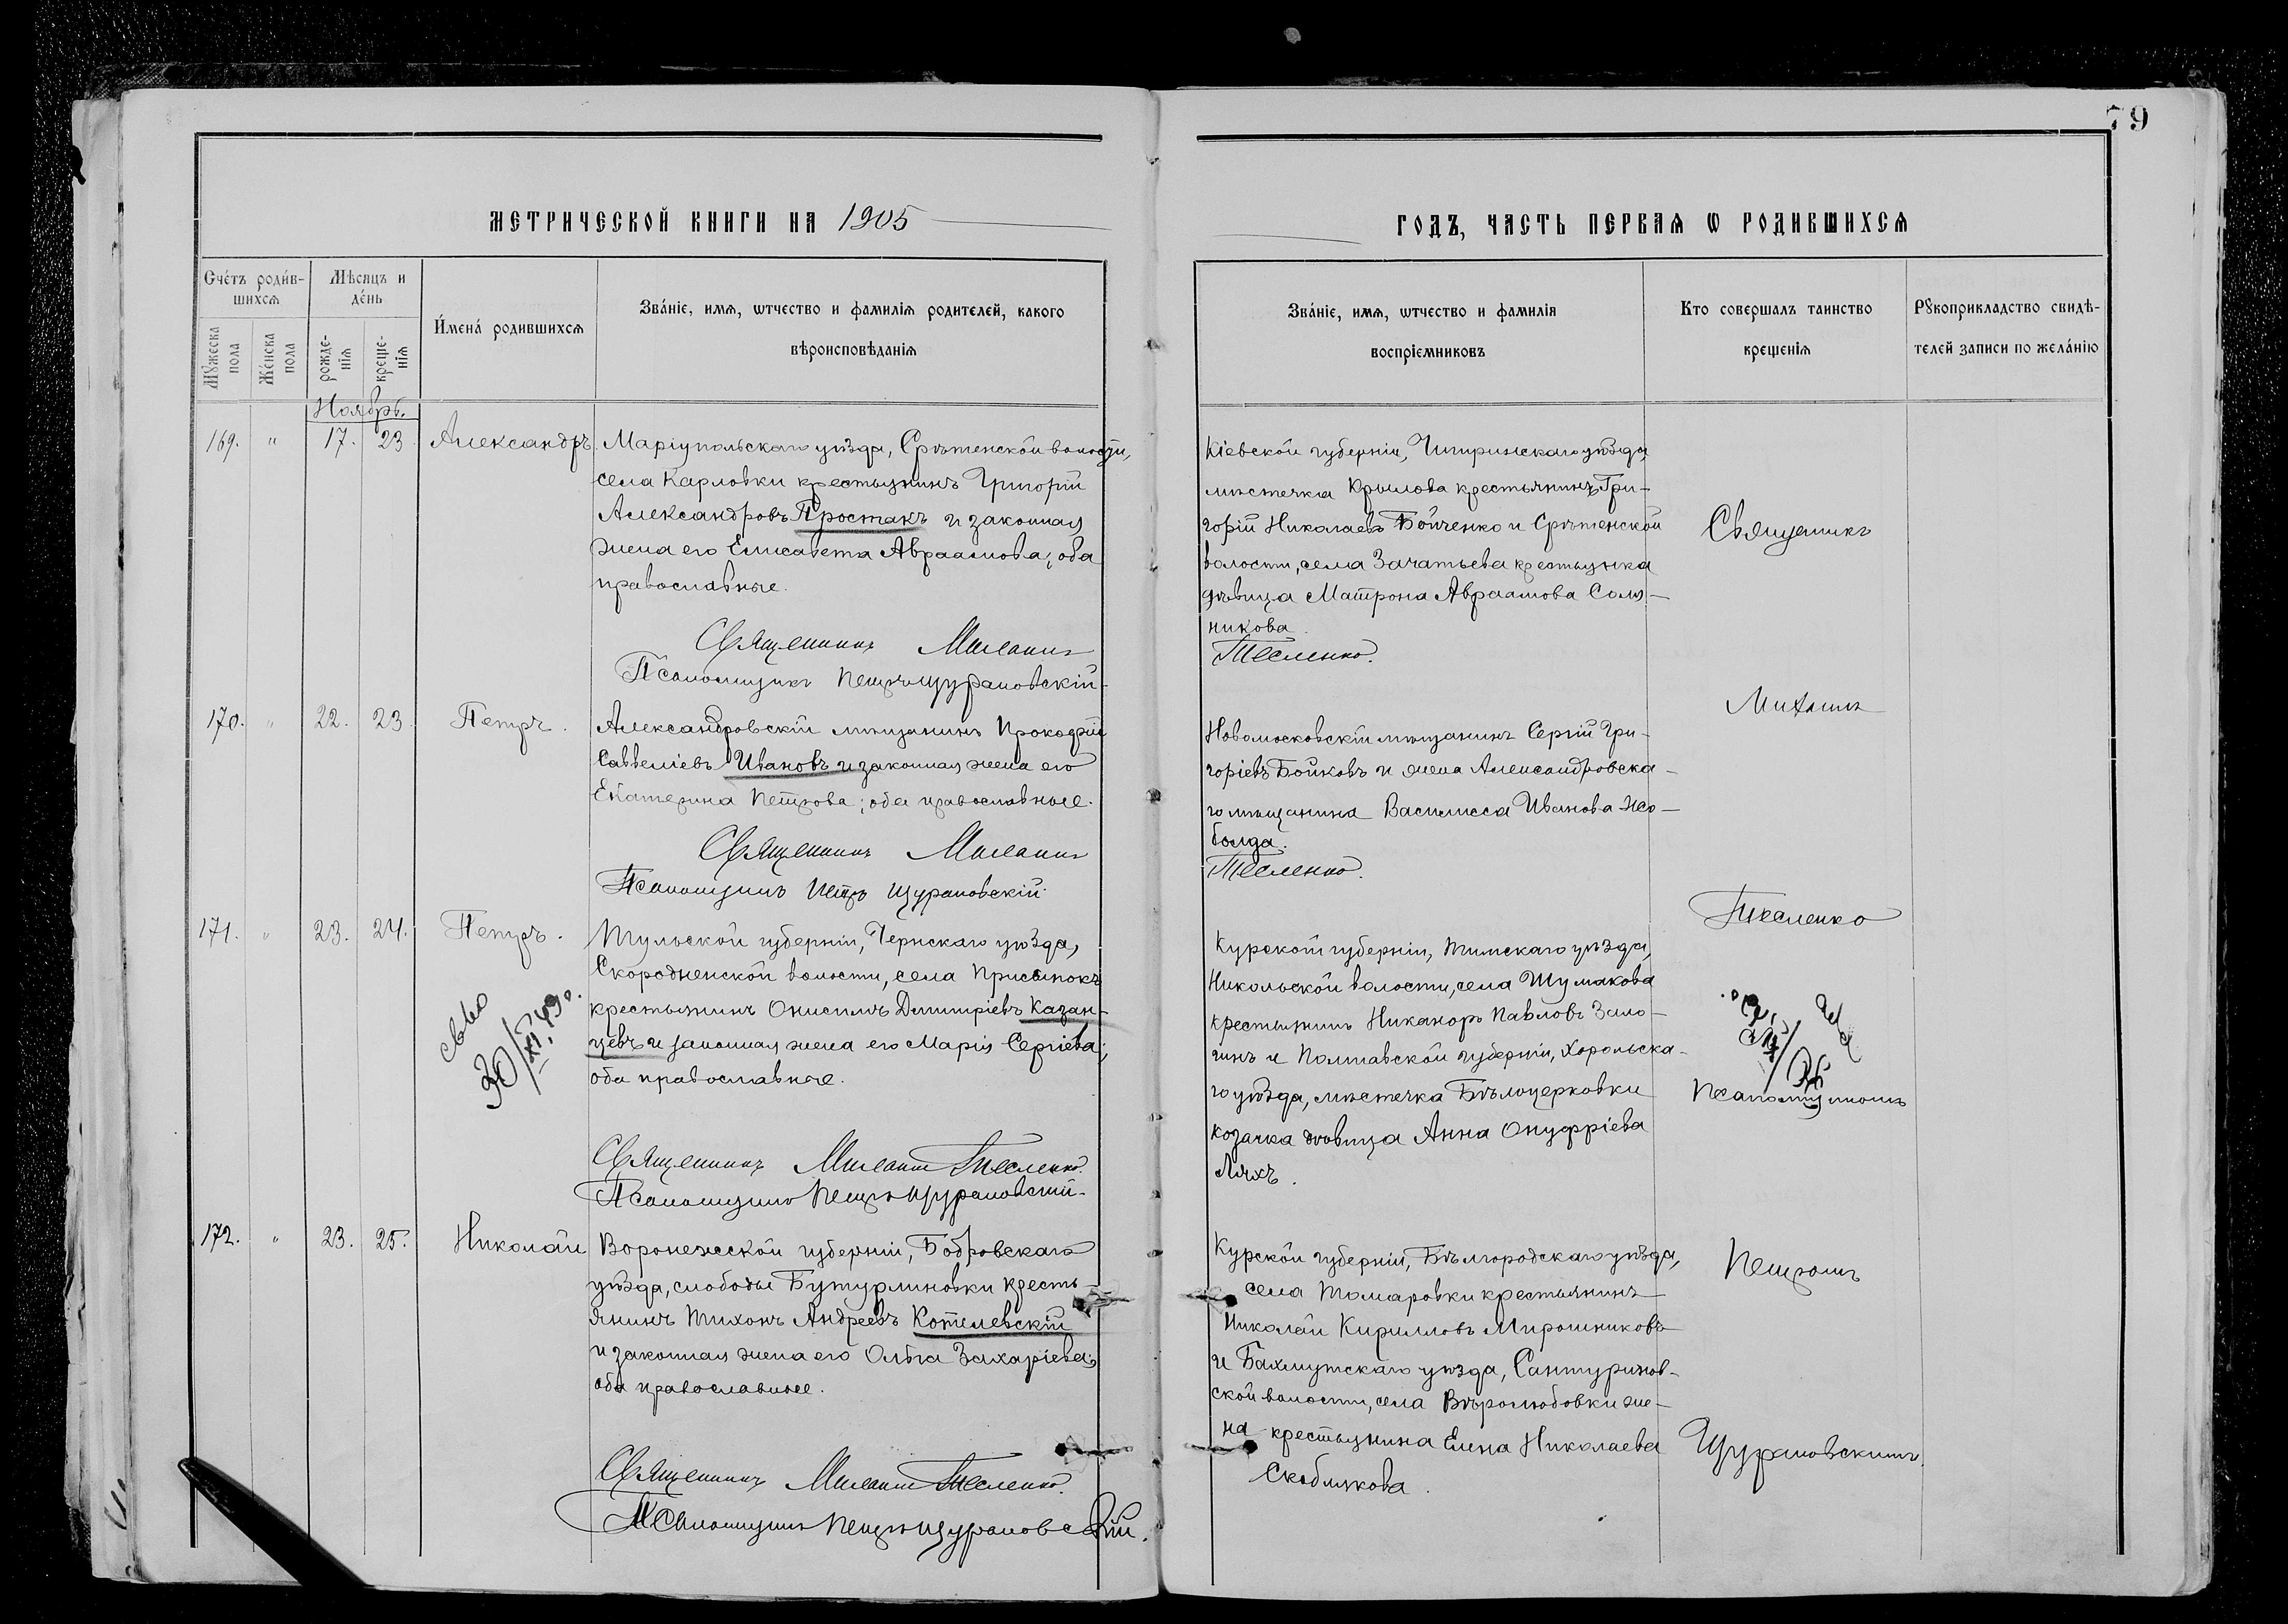 79
МЕТРИЧЕСКОЙ КНИГИ НА 1905
ГОДЪ, ЧАСТЬ ПЕРВАѦ Ѡ РОДИВШИХСѦ
Счéтъ роди́в-
шихсѧ
Мѣсяцъ и
дéнь
Мꙋжеска
пола
Жéнска
пола
рожде-
нїѧ
креще-
нїѧ
И҆мена́ родившихсѧ
Зва́нїе, имѧ, ѡтчество и фамилїѧ родителей, какого
вѣроисповѣданїѧ
Зва́нїе, имѧ, ѡтчество и фамилїѧ
воспрїемниковъ
Кто совершалъ таинство
крещенїѧ
Рꙋкоприкладство свидѣ-
телей записи по жела́нїю
Ноябрь.
169. " 17. 23 Александръ.
Маріупольскаго уѣзда, Срѣтенской волости,
села Карловки крестьянинъ Григорій
Александровъ Простакъ и законная
жена его Елисавета Авраамова; оба
православные.
Священникъ Михаилъ
Псаломщикъ Петръ Щурановскій
Кіевской губерніи, Чигиринскаго уѣзда,
мѣстечка Крылова крестьянинъ Гри-
горій Николаевъ Бойченко и Срѣтенской
волости, села Зачатьева крестьянка
дѣвица Матрона Авраамова Соля-
никова.
Тесленко.
Священникъ
170. " 22. 23. Петръ.
Александровскій мѣщанинъ Прокофій
Савеліевъ Ивановъ и законная жена его
Екатерина Петрова; оба православные.
Священникъ Михаилъ
Псаломщикъ Петръ Щурановскій
Новомосковскій мѣщанинъ Сергій Гри-
горіевъ Бойковъ и жена Александровска-
го мѣщанина Василисса Иванова Жо-
болда.
Тесленко.
Михаилъ
Тесленко
171. " 23. 24. Петръ.
Тульской губерніи, Чернскаго уѣзда,
Скородненской волости, села Присынокъ
крестьянинъ Онисимъ Димитріевъ Казан-
цевъ и законная жена его Марія Сергіева;
оба православные.
30/XI 49 г.
Священникъ Михаилъ Тесленко.
Псаломщикъ Петръ Щурановскій
Курской губерніи, Тимскаго уѣзда,
Никольской волости, села Шумакова
крестьянинъ Никаноръ Павловъ Зало-
гинъ и Полтавской губерніи, Хорольска-
го уѣзда, мѣстечка Бѣлоцерковки
козачка дѣвица Анна Онуфріева
Ляхъ.
Псаломщикомъ
172. " 23. 25. Николай
Воронежской губерніи, Бобровскаго
уѣзда, слободы Бутурлиновки кресть-
янинъ Тихонъ Андреевъ Котелевскій
и законная жена его Ольга Захаріева;
оба православные.
Священникъ Михаилъ Тесленко.
Псаломщикъ Петръ Щурановскій.
Курской губерніи, Бѣлгородскаго уѣзда,
села Томаровки крестьянинъ
Николай Кирилловъ Мирошниковъ
и Бахмутскаго уѣзда, Сантуринов-
ской волости, села Вѣролюбовки же-
на крестьянина Елена Николаева
Скоблякова.
Петромъ
Щурановскимъ.